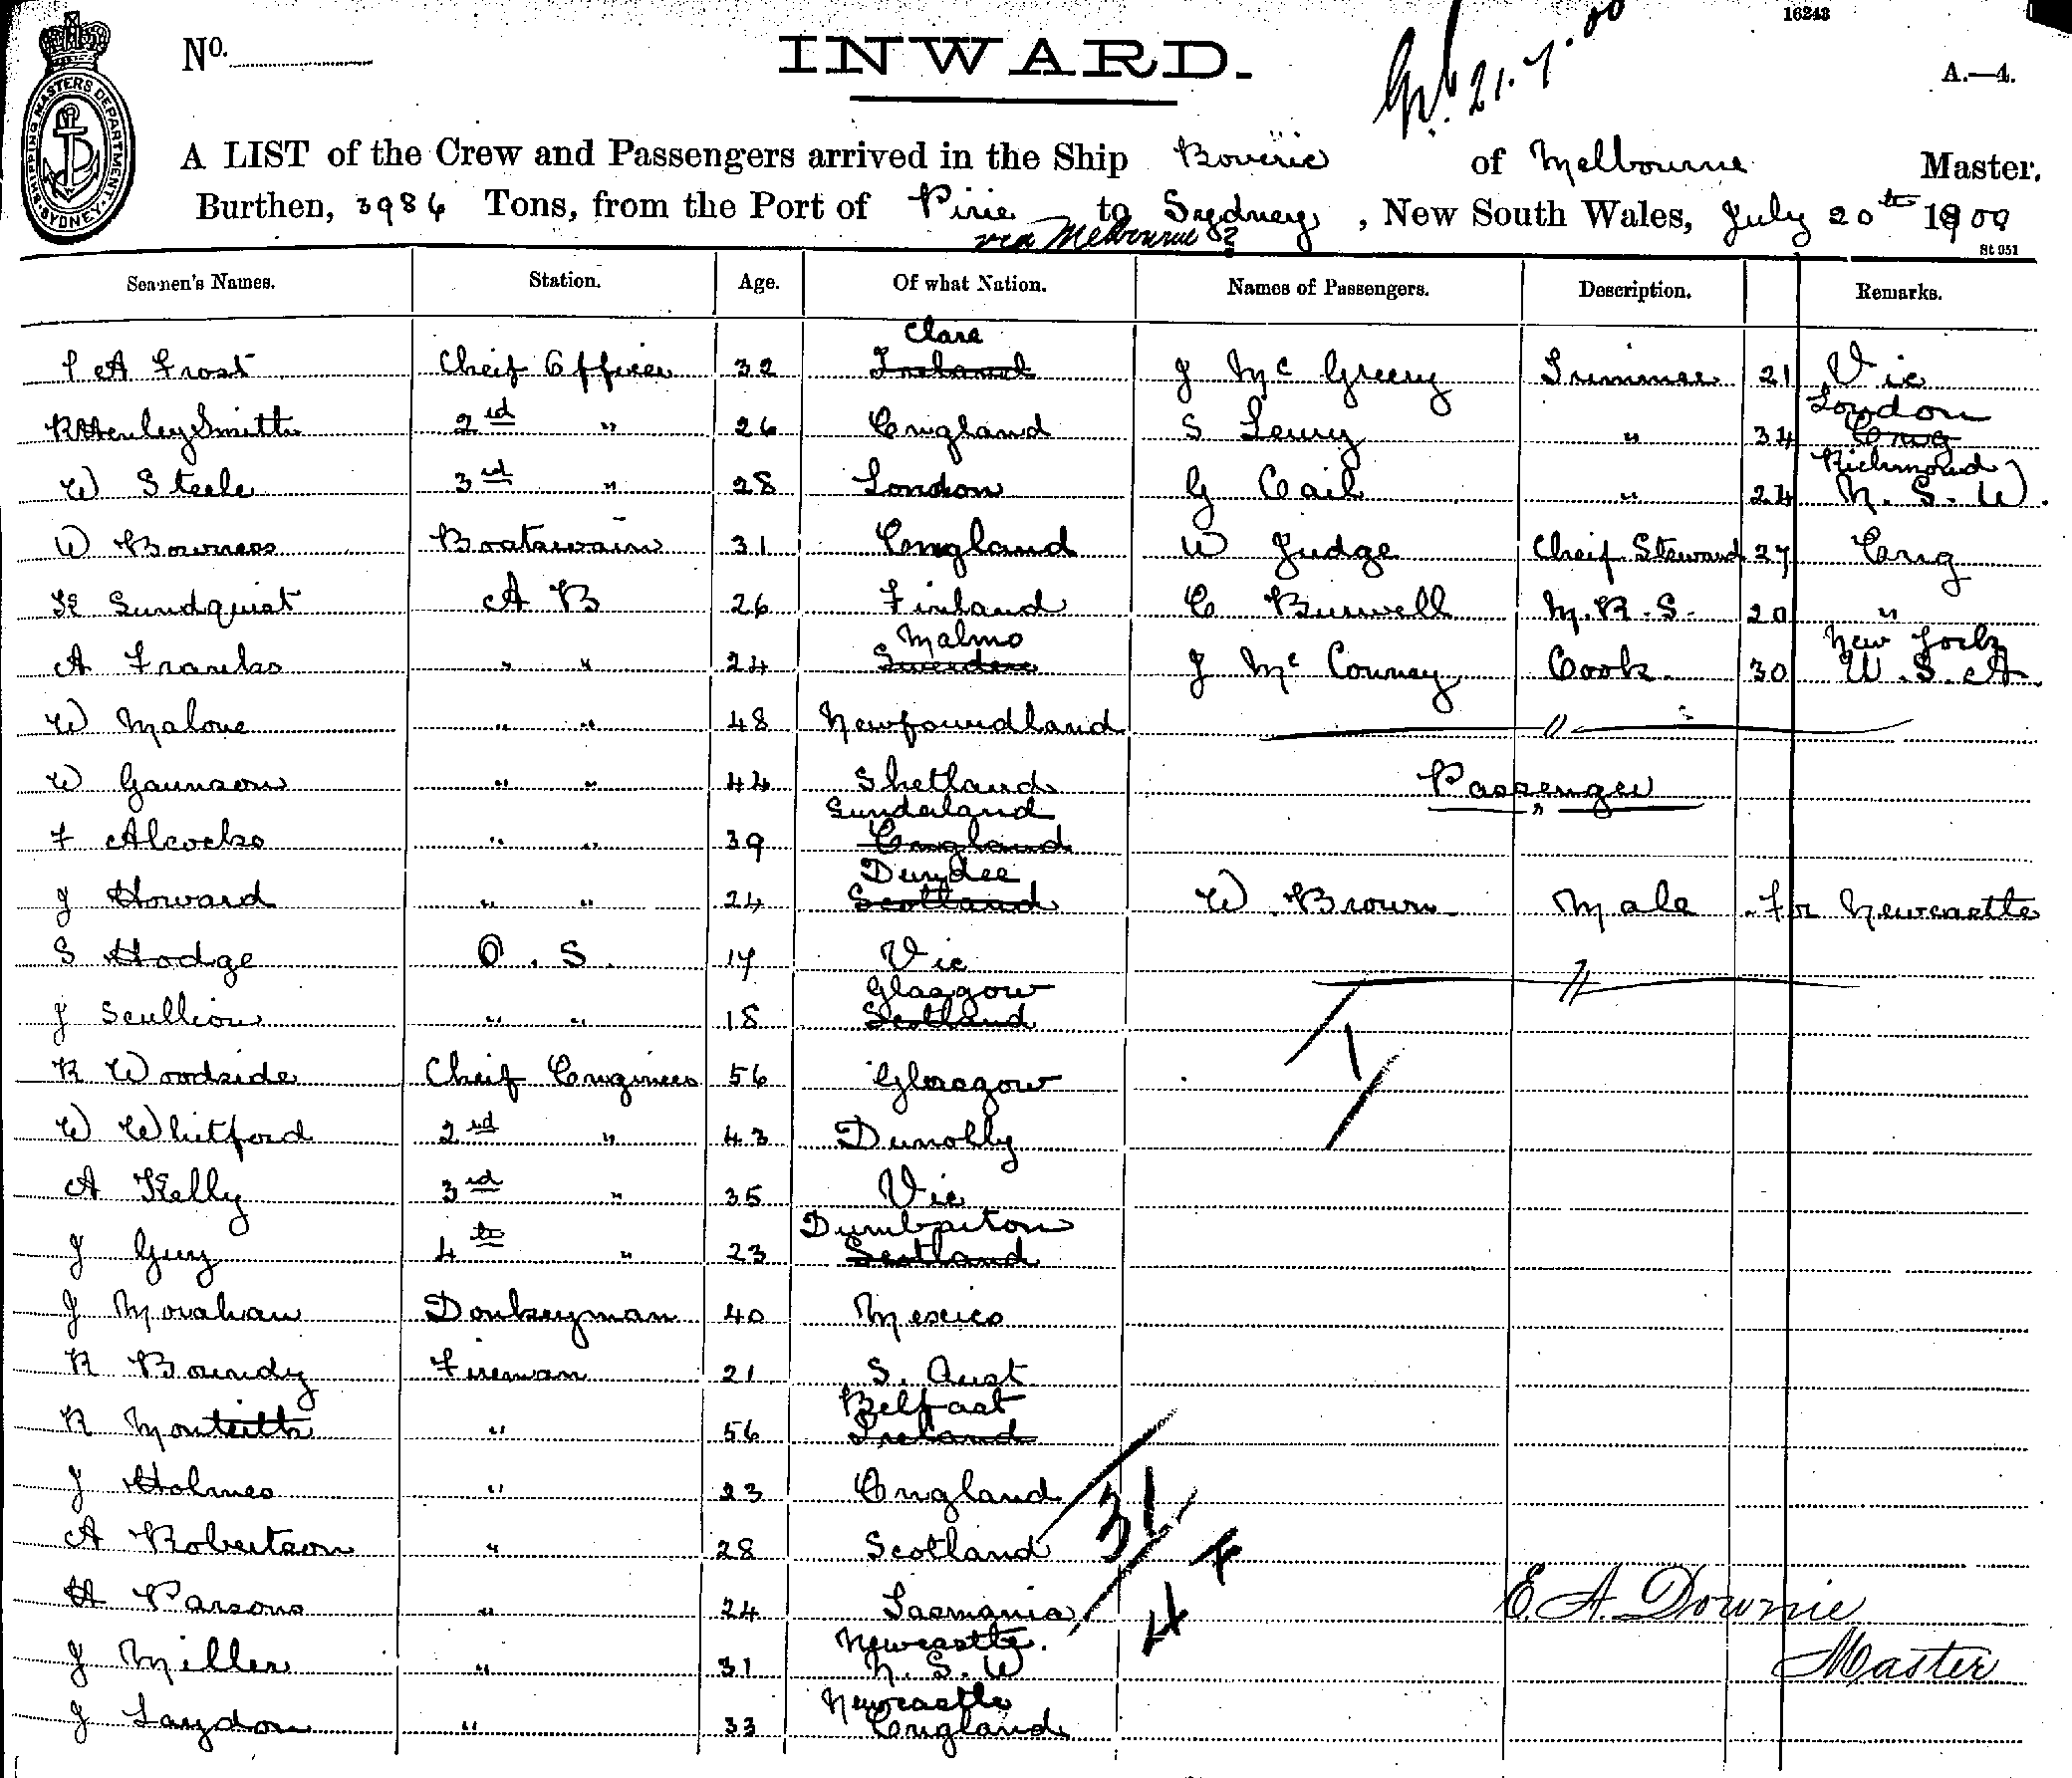 16243
No.
INWARD.
21.7.00
A.—4.
SHIPPING MASTERS DEPARTMENT. SYDNEY.
A LIST of the Crew and Passengers arrived in the Ship Boveric of Melbourne Master.
Burthen, 3986 Tons, from the Port of Pirie to Sydney, New South Wales, July 20th 1900
via Melbourne
St 951
Seamen's Names. Station. Age. Of what Nation. Names of Passengers. Description. Remarks.
Clare
A Frost Cheif Officer 32 Ireland J Mc Greery Trimmer 21 Vic
London
R Henley Smith 2nd " 26 England S Leury " 34 Eng
Richmond
W Steele 3rd " 28 London G Cail " 24 N. S. W.
W Bowness Boatswain 31 England W Judge Cheif Steward 27 Eng
K Sundquist A B 26 Finland C Burwell M. R. S. 20 "
Malmo New York
A Franks " " 24 Sweden J Mc Conney Cook 30 U. S. A.
W Malone " " 48 Newfoundland
W Gaunson " " 44 Shetland Passenger
Sunderland
F Alcocks " " 39 England
Dundee
J Howard " " 24 Scotland W. Brown Male Fr Newcastle
S Hodge O. S. 17 Vic
Glasgow
J Scullion " " 18 Scotland
1
R Woodside Cheif Engineer 56 Glasgow
W Whitford 2nd " 43 Dunolly
A Kelly 3rd " 35 Vic
Dumbarton
J Guy 4th " 23 Scotland
J Movahan Donkeyman 40 Mexico
R Boundy Fireman 21 S. Aust
Belfast
R Monteith " 56 Ireland
J Holmes " 23 England
31
A Robertson " 28 Scotland
H Parsons " 24 Tasmania
E. A. Downie
Newcastle.
J Miller " 31 N. S. W
Master
Newcastle
J Laydon " 33 England